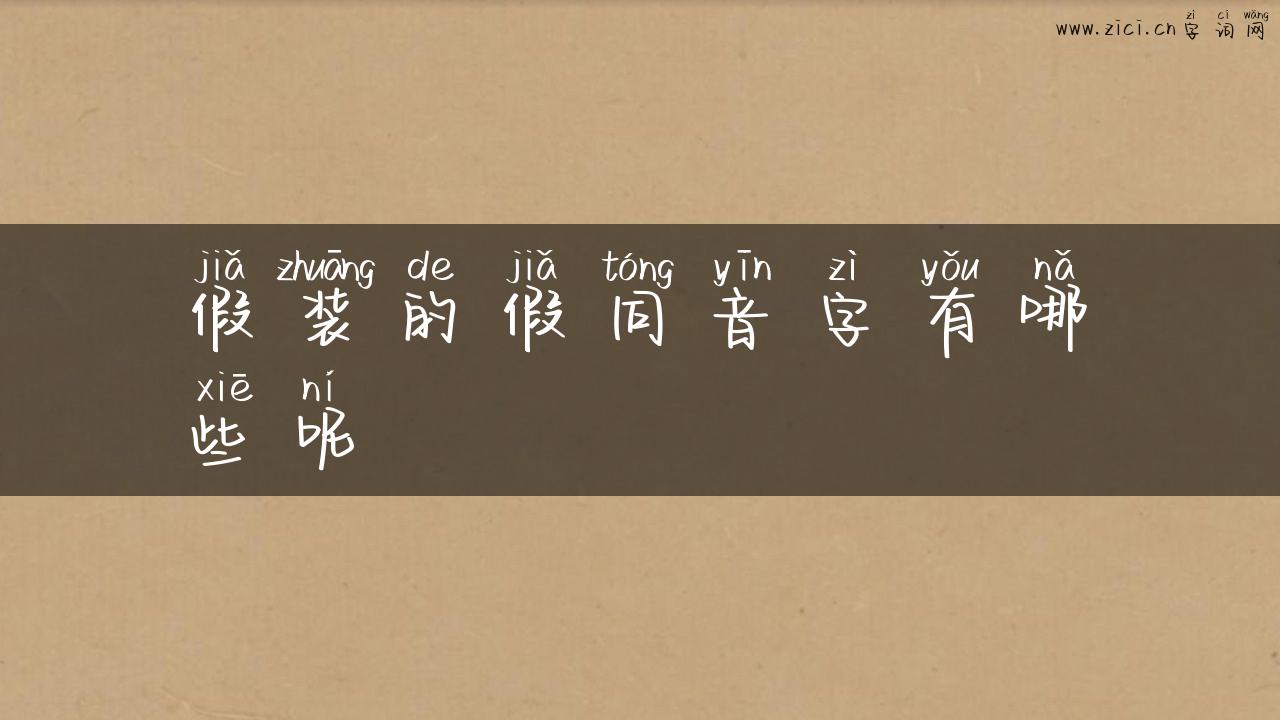 zì cí wǎng
www.zici.cn 字 词 网
jiǎ zhuāng de jiǎ tóng yīn zì yǒu nǎ
假 装 的 假 同 音 字 有 哪
xiē ní
些 呢